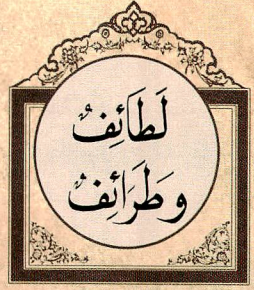 لَطَائِفُ
وَطَرَائِفُ